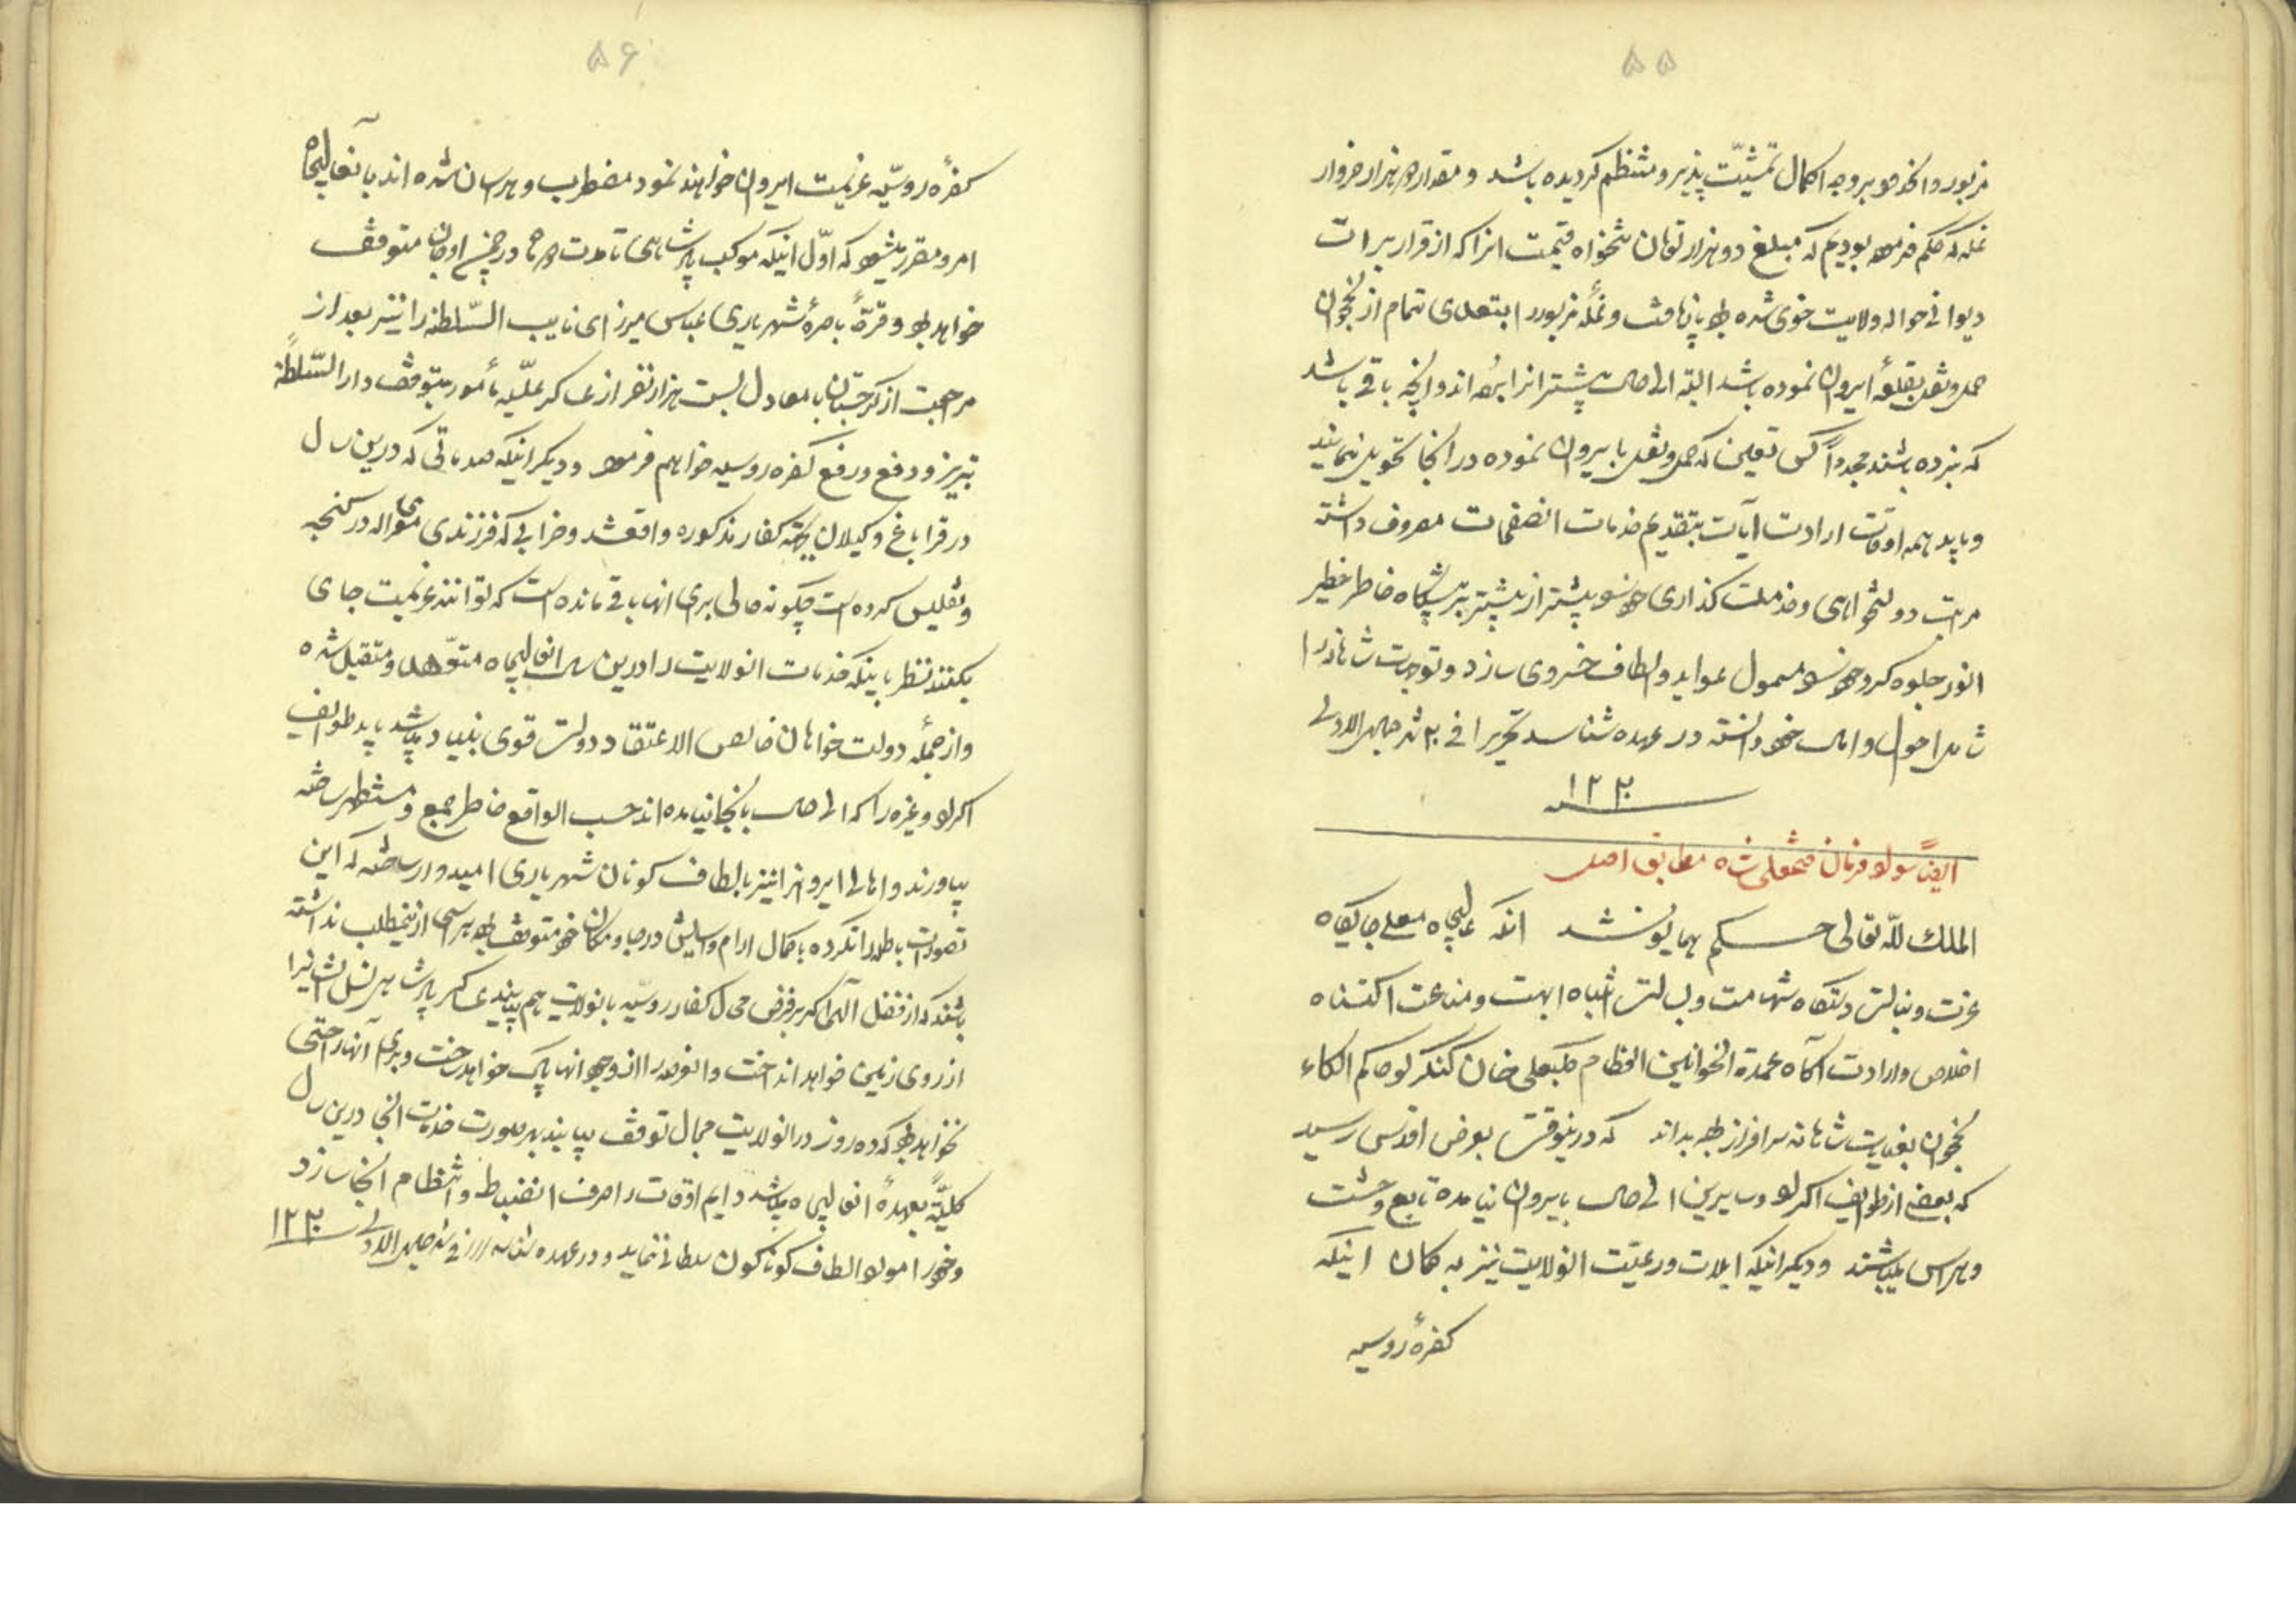 ۵۵
مزبور و انخدمو بروجه اکمال تمشیّت پذیر و منتظم کردیده باشد و مقدار هزار خروار
غله که حکم فرموده بودیم که مبلغ دو هزار تومان تنخواه قیمت انرا که از قرار برات
دیوانی حواله ولایت خوی شده و غلّه مزبور را بتعدی تمام از نخجوان
حمل و نقل بقلعهٔ ایروان نموده باشد البته الی حال پیشتر انرا برده اند و انچه باقی باشد
که نبرده باشند مجدداً کس تعیین که حمل و نقل بایروان نموده در انجا تحویل نمایند
و باید همه اوقات ارادت آیات بتقدیم خدمات اتصفحات مصروف داشته
مراتب دولتخواهی و خدمت کذاری خود پیشتر از پیشتر بر پیشگاه خاطر خطیر
انور جلوه کر و خود مشمول عواید و الطاف خسروی سازد و توجهات شاهانه را
شامل احوال و امال خود دانسته در عهده شناسد تحریرا فی شهر جمادی الاولی
۱۲۲۰
ایضاً سواد فرمان فتحعلی شاه مطابق اصل
الملك للّه تعالی حکم همایون شد انکه عالیجاه معلی جایکاه
عزت و نبالت دستکاه شهامت و بسالت انتباه ابهت و مناعت اکتناه
اخلاص و ارادت اکاه عمدة الخوانین العظام کلبعلی خان کنکرلو حاکم الکاء
نخجوان بعنایت شاهانه سرافراز بوده بداند که درینوقت بعرض اقدس رسید
که بعضی از طوایف اکراد و سایرین الی حال بایروان نیامده تابع وحشت
و هراس میباشند و دیکر اینکه ایلات و رعیّت انولایت نیز به کمان اینکه
کفرهٔ روسیه
۵۶
کفرهٔ روسیّه عزیمت ایروان خواهند نمود مضطرب و هراسان شده اند بانعالیجاه
امر و مقرر میشود که اوّل اینکه موکب پادشاهی تا مدت در چمن اوجان متوقف
خواهد بود و قرّهٔ باصرهٔ شهریاری عباس میرزای نایب السّلطنه را نیز بعد از
مراجعت از کرجستان با معادل بیست هزار نفر از عساکر علیّه مأمور بتوقف دار السّلطنهٔ
تبریز و دفع و رفع کفره روسیه خواهیم فرمود و دیکر اینکه صدماتی که درین سال
در قراباغ و کیلان بکفار مذکوره واقع شد و خرابی که فرزندی معزی اله در کنجه
و تفلیس کرده است چکونه حالی برای انها باقی مانده است که توانند عزیمت جای
بکنند نظر باینکه خدمات انولایت را درین سال انعالیجاه متعهد و متقبل شده
و از جمله دولت خواهان خالص الاعتقاد دولت قوی بنیاد میباشد باید طوایف
اکراد و غیره را که الی حال بانجا نیامده اند حسب الواقع خاطر جمع و مستظهر ساخته
بیاورند و اهالی ایروانرا نیز بالطاف کوناکون شهریاری امیدوار ساخته که این
تصورات باطله را نکرده بکمال ارام و اسایش در جا و مکان خود متوقف بوده هراسی ازینمطلب نداشته
باشند که از فضل الهی اکر بر فرض محال کفار روسیه بانولایت هم بیایند عساکر پادشاهی نسل ایشانرا
از روی زمین خواهد انداخت و انحدود را از وجود انها پاک خواهد ساخت و برای آنها راحتی
نخواهد بود که ده روز در انولایت مجال توقف بیابند بهر صورت خدمات انجا درین سال
کلیّةً بعهدهٔ انعالیجاه میباشد دایم اوقات را صرف انضباط و انتظام انجا سازد
و خود را مورد الطاف کوناکون سلطانی نماید و در عهده شناسد فی شهر جمادی الاولی ۱۲۲۰